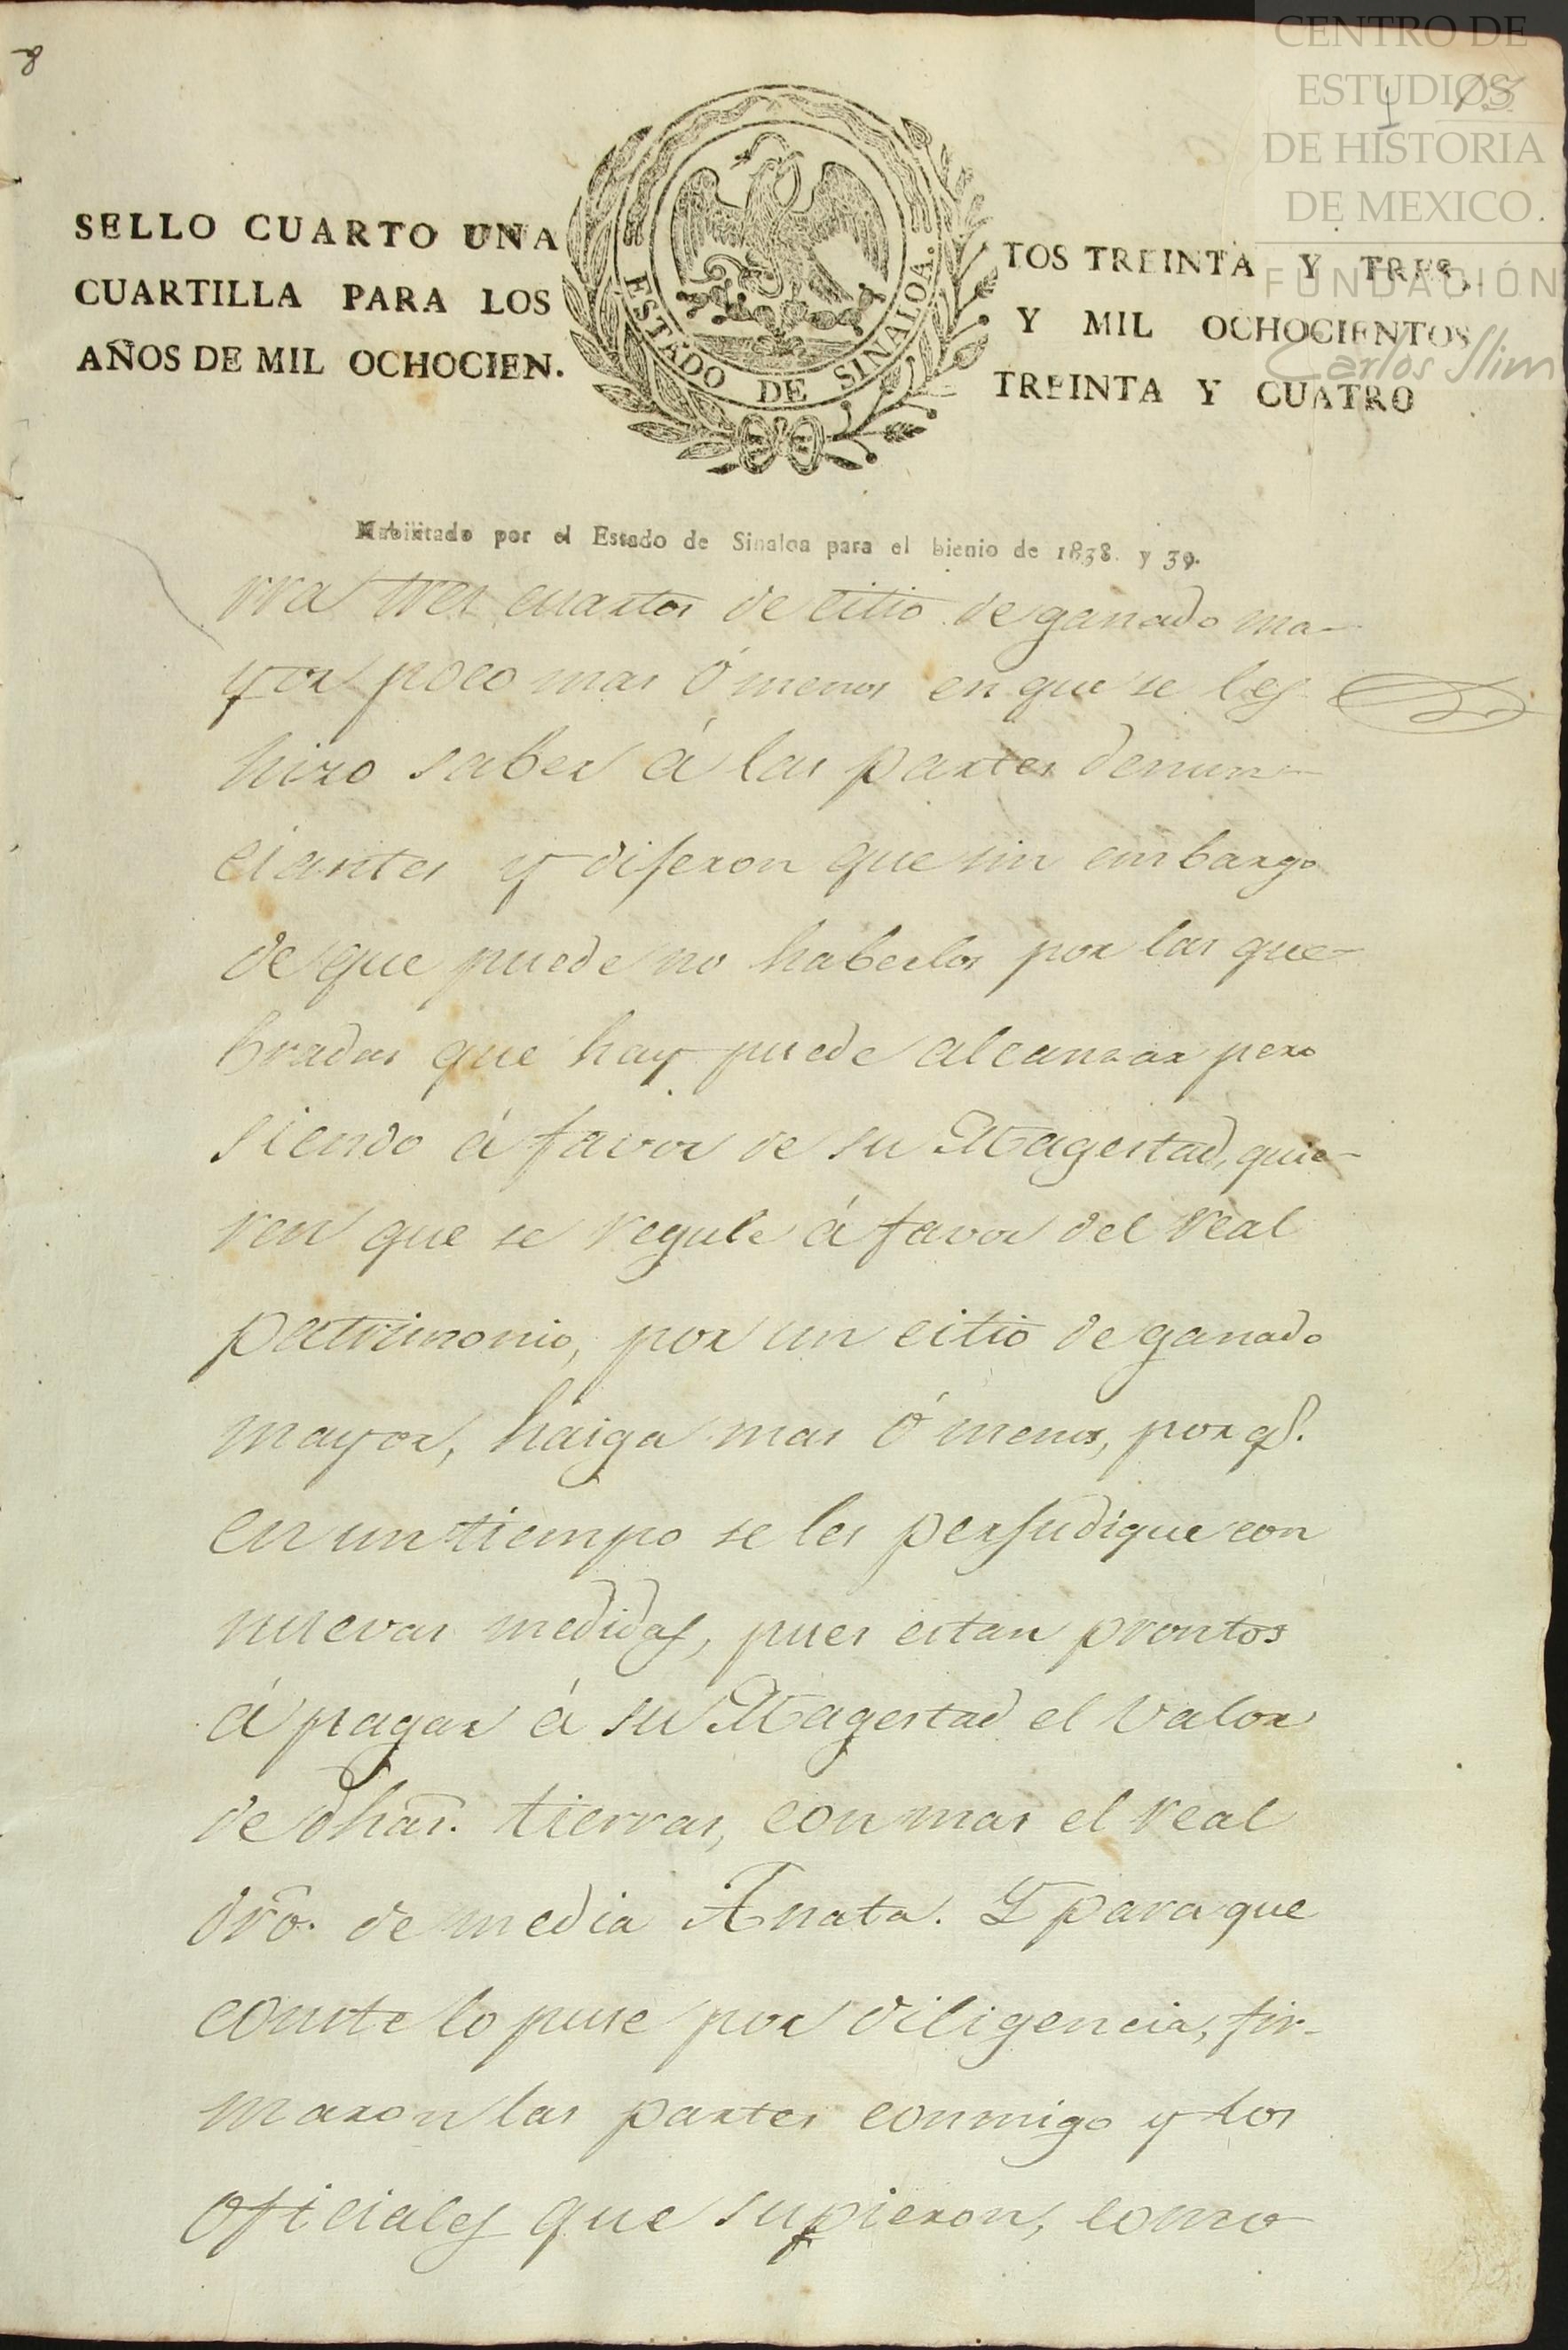 CENTRO DE
ESTUDIOS
DE HISTORIA
DE MEXICO.
FUNDACIÓN
Carlos Slim
SELLO CUARTO UNA
CUARTILLA PARA LOS
AÑOS DE MIL OCHOCIEN.
ESTADO DE SINALOA.
TOS TREINTA Y TRES,
Y MIL OCHOCIENTOS
TREINTA Y CUATRO
Habilitado por el Estado de Sinaloa para el bienio de 1838. y 39.
rra tres cuartos de citio de ganado ma-
yor poco mas ó menos en que se les
hizo saber á las partes denun-
ciantes y dijeron que sin embargo
de que puede no haberlos por las que-
bradas que hay puede alcanzar pero
siendo á favor de su Magestad, quie-
ren que se regule á favor del real
patrimonio, por un citio de ganado
mayor, haiga mas ó menos, por q̃.
en un tiempo se les perjudique con
nuevas medidas, pues estan prontos
á pagar á su Magestad el valor
de dhas. tierras, con mas el real
dro. de media Anata. Y para que
conste lo puse por diligencia, fir-
maron las partes conmigo y los
oficiales que supieron, como